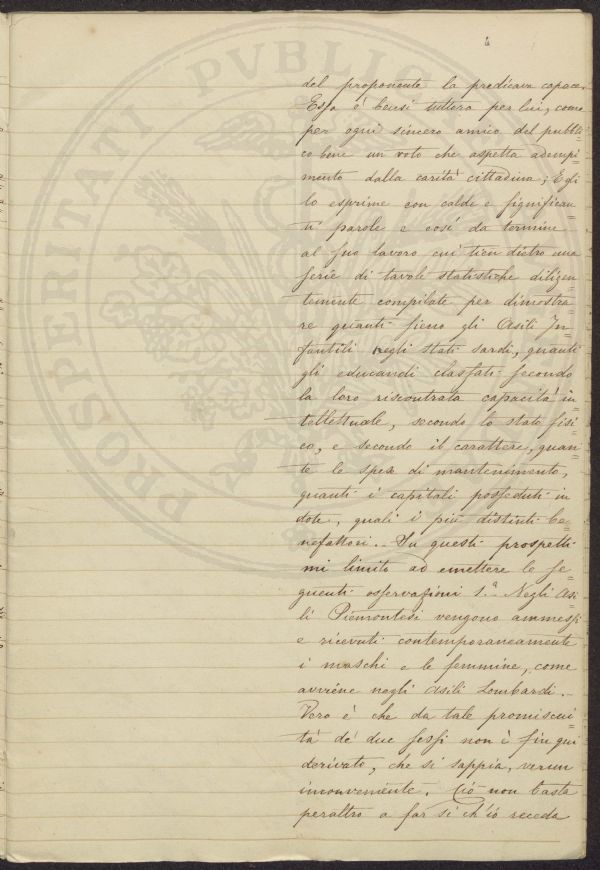 PROSPERITATI PVBLICAE
4
del proponente la predicava capace.
Essa è bensì tuttora per lui, come
per ogni sincero amico del pubbli=
co bene un voto che aspetta adempi=
mento dalla carità cittadina; Egli
lo esprime con calde e significan=
ti parole e così da termine
al suo lavoro cui tien dietro una
serie di tavole statistiche diligen=
temente compilate per dimostra=
re quanti sieno gli Asili In=
fantili negli stati sardi, quanti
gli educandi classati secondo
la loro riscontrata capacità in=
tellettuale, secondo lo stato fisi=
co, e secondo il carattere, quan=
te le spese di mantenimento,
quanti i capitali posseduti in
dote, quali i più distinti be=
nefattori.. Su questi prospetti
mi limito ad emettere le se=
guenti osservazioni 1.a Negli Asi=
li Piemontesi vengono ammessi
e ricevuti contemporaneamente
i maschi e le femmine, come
avviene negli Asili Lombardi.
Vero è che da tale promiscui=
tà de' due sessi non è fin qui
derivato, che si sappia, verun
inconveniente. Ciò non basta
peraltro a far sì ch'io receda